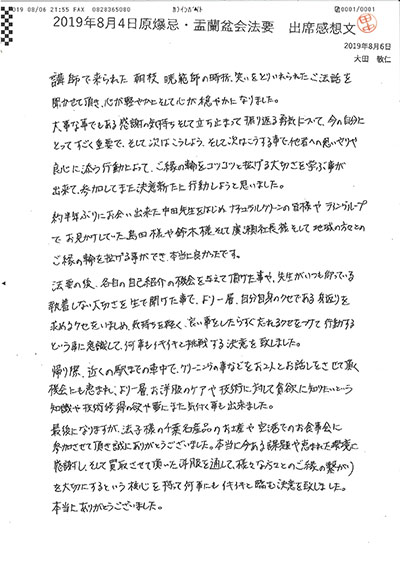 2019 08/06 21:55 FAX 0828365080
0001/0001
2019年8月4日原爆忌・盂蘭盆会法要 出席感想文
2019年8月6日
太田 敬仁
講師で来られた 朝枝 暁範師の時折、笑いをとりいれられたご法話を
聞かせて頂き、心が軽やかとそして心が穏やかになりました。
大事な事でもある感謝の気持ち そして立ち止まって振り返る勇気について、今の自分に
とって すごく重要で、そして次はこうしよう、そして次はこうする事で、他者への思いやりや
良心に添う行動によって、ご縁の輪をコツコツと拡げる大切さを学ぶ事が
出来て、参加してまた決意新たに行動しようと思いました。
約半年ぶりにお会い出来た中田先生をはじめ、ナチュラルクリーンの皆様や
で お見かけしていた、島田様や鈴木様 そして廣瀬社長様 そして地域の方々との
ご縁の輪を拡げる事ができ、本当に良かったです。
法要の後、各自の自己紹介の機会を与えて頂けた事や、先生がいつも仰っている
執着しない大切さを生で聞けた事で、より一層、自分自身のクセである見返りを
求めるクセをいましめ、気持ちを軽く、良い事をしたらすぐ忘れるクセをつけて行動する
という事に意識して、何事も1つ1つと挑戦する決意を致しました。
帰り際、近くの駅までの車中で、クリーニングの事などをお2人とお話しをさせて頂く
機会にも恵まれ、より一層、お洋服のケアや技術に対して貪欲に知りたいという
知識や技術修得の欲や夢にまた気付く事も出来ました。
最後になりますが、法子様の千葉名産品のお土産や空港でのお食事会に
参加させて頂き誠にありがとうございました。本当に今ある課題や恵まれた環境に
感謝し、そして買取させて頂いた洋服を通して、様々な方々とのご縁の繋がり
を大切にするという核心を持って何事にも1つ1つと臨む決意を致しました。
本当にありがとうございました。